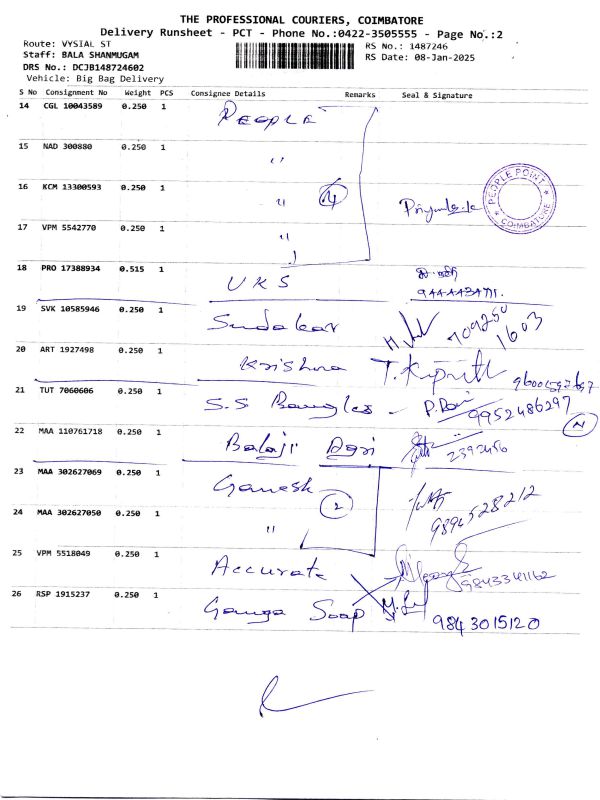 THE PROFESSIONAL COURIERS, COIMBATORE
Delivery Runsheet - PCT - Phone No.:0422-3505555 - Page No.:2
Route: VYSIAL ST
RS No.: 1487246
Staff: BALA SHANMUGAM
RS Date: 08-Jan-2025
DRS No.: DCJB148724602
Vehicle: Big Bag Delivery
S No Consignment No Weight PCS Consignee Details Remarks Seal & Signature
14 CGL 10043589 0.250 1 PEOPLE
15 NAD 300880 0.250 1 "
16 KCM 13300593 0.250 1 " 4
PEOPLE POINT
* COIMBATORE *
17 VPM 5542770 0.250 1 "
18 PRO 17388934 0.515 1 UKS
19 SVK 10585946 0.250 1 Sudakar
20 ART 1927498 0.250 1 Krishna
21 TUT 7060606 0.250 1 S.S Bangles 9952486297
22 MAA 110761718 0.250 1 Balaji 2392456
23 MAA 302627069 0.250 1 Ganesh 2
24 MAA 302627050 0.250 1 " 9894528212
25 VPM 5518049 0.250 1 Accurate 9843341162
26 RSP 1915237 0.250 1 Ganga Soap 9843015120